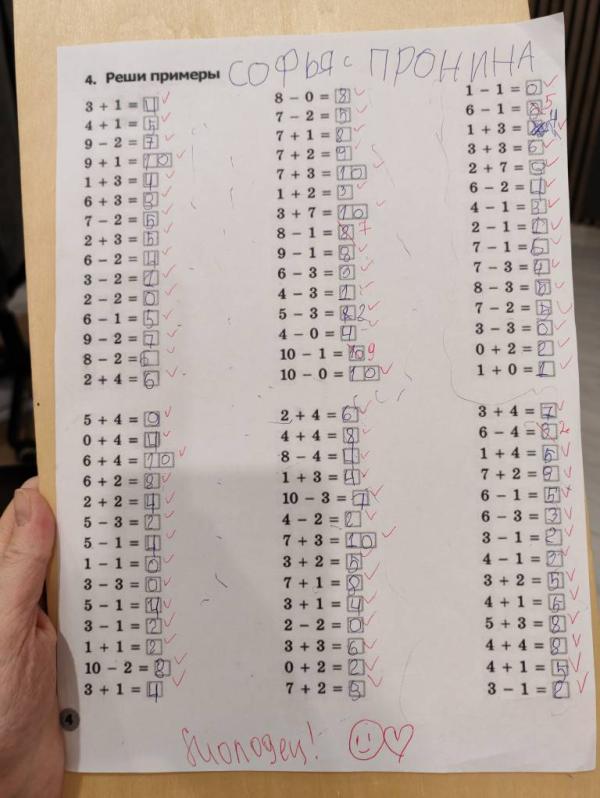 4. Реши примеры СОФЬЯ ПРОНИНА
3 + 1 = 4
4 + 1 = 5
9 − 2 = 7
9 + 1 = 10
1 + 3 = 4
6 + 3 =
7 − 2 = 5
2 + 3 = 5
6 − 2 = 4
3 − 2 = 1
2 − 2 = 0
6 − 1 = 5
9 − 2 = 7
8 − 2 = 6
2 + 4 = 6
8 − 0 = 8
7 − 2 = 5
7 + 1 = 8
7 + 2 = 9
7 + 3 = 10
1 + 2 = 3
3 + 7 = 10
8 − 1 = 8 7
9 − 1 = 8
6 − 3 = 3
4 − 3 = 1
5 − 3 = 2
4 − 0 = 4
10 − 1 = 10 9
10 − 0 = 10
1 − 1 = 0
6 − 1 = 5
1 + 3 = 4
3 + 3 = 6
2 + 7 = 9
6 − 2 = 4
4 − 1 = 3
2 − 1 = 1
7 − 1 = 6
7 − 3 = 4
8 − 3 = 5
7 − 2 = 5
3 − 3 = 0
0 + 2 = 2
1 + 0 = 1
5 + 4 =
0 + 4 = 4
6 + 4 = 10
6 + 2 = 8
2 + 2 = 4
5 − 3 = 2
5 − 1 = 4
1 − 1 = 0
3 − 3 = 0
5 − 1 = 4
3 − 1 = 2
1 + 1 = 2
10 − 2 = 8
3 + 1 = 4
2 + 4 = 6
4 + 4 = 8
8 − 4 = 4
1 + 3 = 4
10 − 3 = 7
4 − 2 = 2
7 + 3 = 10
3 + 2 = 5
7 + 1 = 8
3 + 1 = 4
2 − 2 = 0
3 + 3 = 6
0 + 2 = 2
7 + 2 = 9
3 + 4 = 7
6 − 4 = 2
1 + 4 = 5
7 + 2 = 9
6 − 1 = 5
6 − 3 = 3
3 − 1 = 2
4 − 1 = 3
3 + 2 = 5
4 + 1 = 5
5 + 3 = 8
4 + 4 = 8
4 + 1 = 5
3 − 1 = 2
4
Молодец!